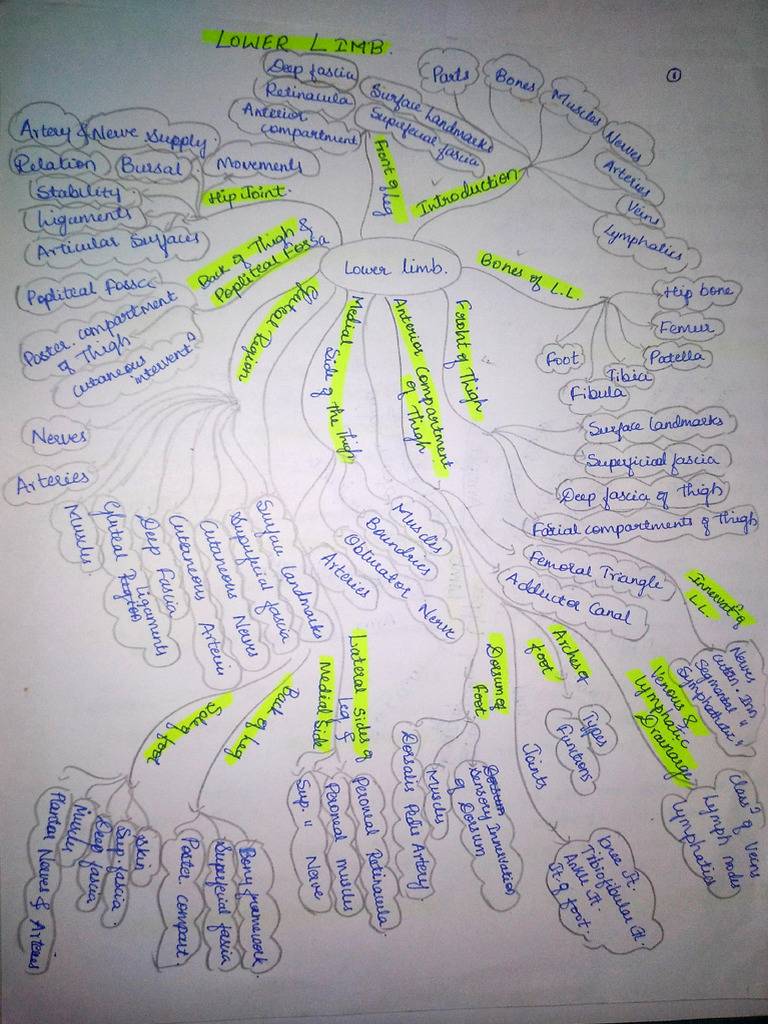 LOWER LIMB.
1
Deep fascia
Retinacula
Anterior
compartment
Front of Leg
Surface landmarks
Superficial fascia
Parts
Bones
Muscles
Nerves
Arteries
Veins
Lymphatics
Introduction
Artery & Nerve Supply.
Relation
Bursal
Movements
Stability.
Ligaments
Articular Surfaces
Hip Joint.
Lower limb.
Back of Thigh &
Popliteal Fossa
Popliteal Fossa
Poster. compartment
of Thigh
cutaneous
Bones of L.L.
Hip bone
Femur
Patella
Tibia
Fibula
Foot
Gluteal Region
Nerves
Arteries
Muscles.
Gluteal
Ligaments
Deep Fascia
Cutaneous Arteries
Cutaneous Nerves
Superficial fascia
Surface landmarks
Medial Side of the Thigh
Muscles
Boundries
Obturator Nerve
Arteries
Anterior Compartment
of Thigh
Femoral Triangle
Adductor Canal
Froht of Thigh
Surface landmarks
Superficial fascia
Deep fascia of Thigh
Facial compartments of Thigh
Innervat of
L.L.
Nerves
cutan. Inn
Segmental "
Sympathetic "
Venous &
Lymphatic
Drainarge
Class of Veins
Lymph nodes
Lymphatics
Arches of
foot
Types
Functions
Joints
Knee Jt.
Tibiofibular Jt.
Ankle Jt.
Jt of foot.
Dorsum of
foot
Sensory Innervation
of Dorsum
Muscles
Dorsalis Pedis Artery
Lateral Sides of
Leg &
Medial Side
Peroneal Retinacula.
Peroneal muscles
Sup. " Nerve
Back of Leg
Bony framework
Superficial fascia
Poster. compart.
Sole of foot
Skin
Sup. fascia.
Deep fascia
Muscles
Plantar Nerves & Arteries